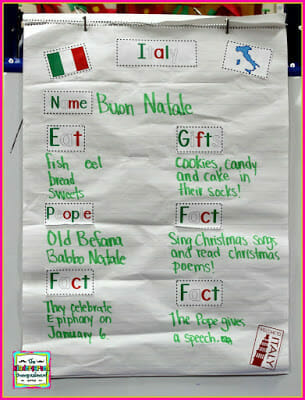 Italy
Name Buon Natale
Eat
fish eel
bread
sweets
Gifts
cookies, candy
and cake in
their socks!
People
Old Befana
Babbo Natale
Fact
Sing Christmas songs
and read christmas
poems!
Fact
They celebrate
Epiphany on
January 6.
Fact
The Pope gives
a speech.
ITALY
The
Kindergarten
Smorgasboard